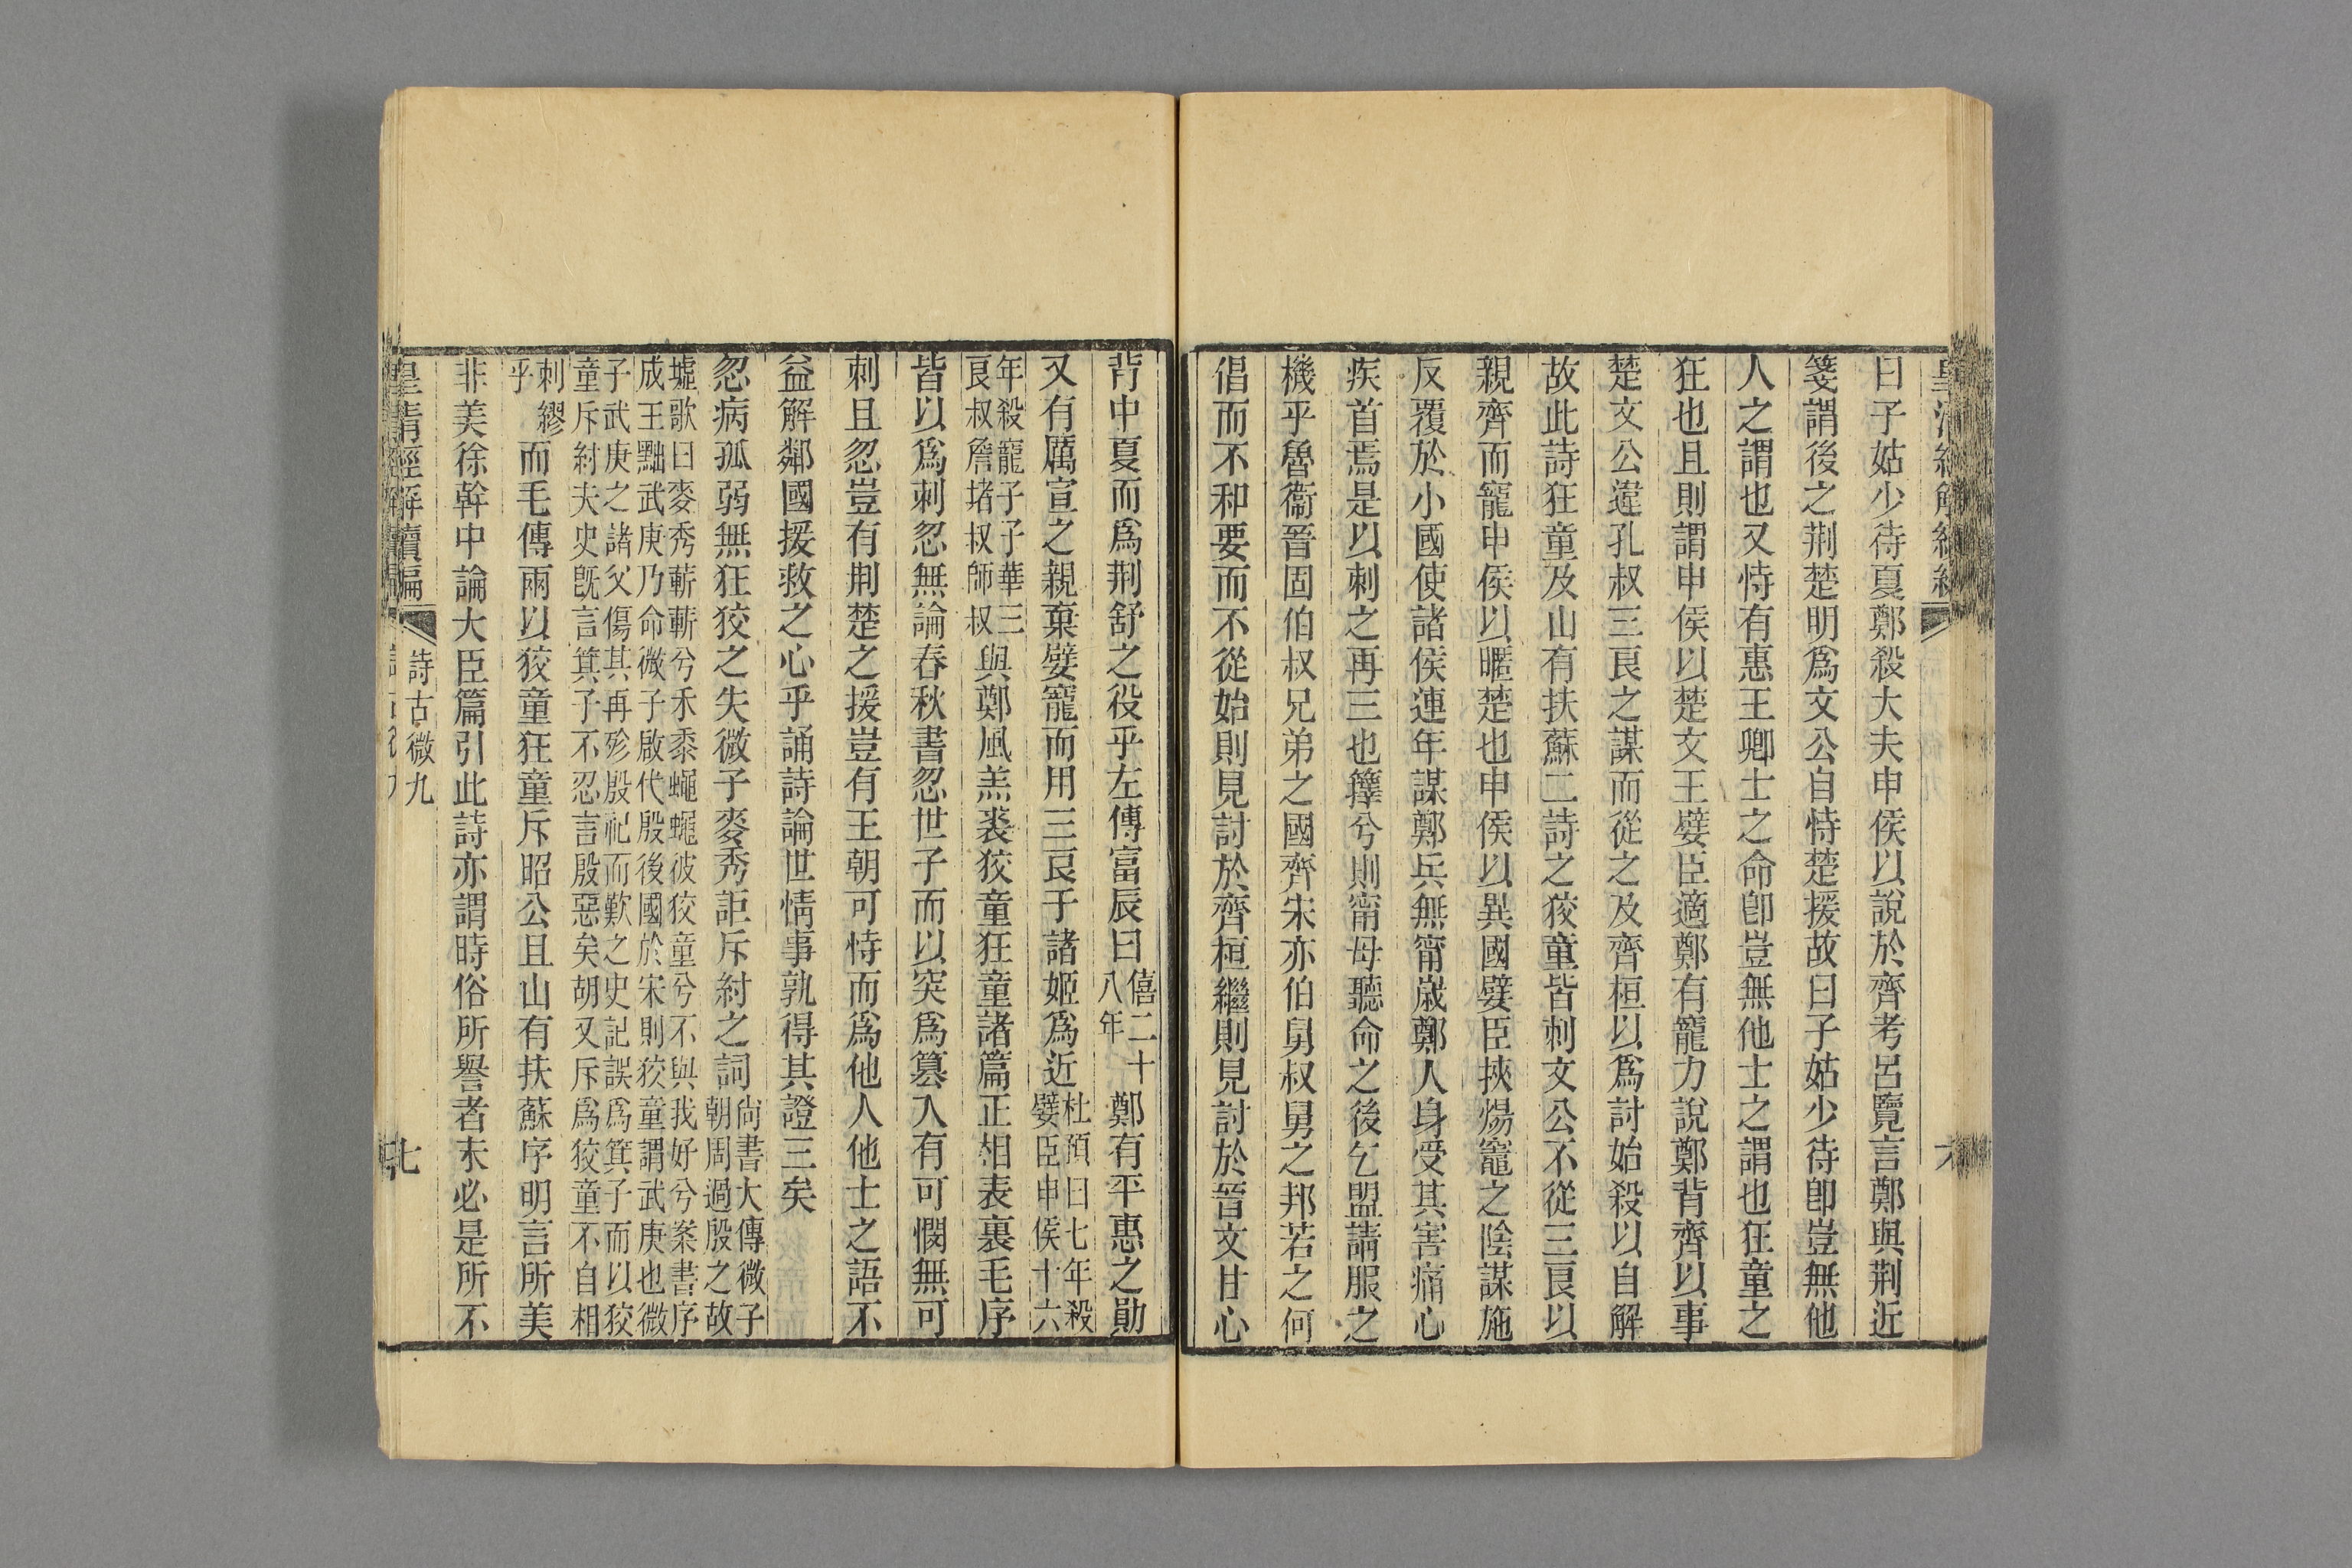 曰子姑少待夏鄭殺大夫申侯以說於齊考呂覽言鄭與荆近
箋謂後之荆楚明爲文公自恃楚援故曰子姑少待卽豈無他
人之謂也又恃有惠王卿士之命卽豈無他士之謂也狂童之
狂也且則謂申侯以楚文王嬖臣適鄭有寵力說鄭背齊以事
楚文公違孔叔三良之謀而從之及齊桓以爲討始殺以自解
故此詩狂童及山有扶蘇二詩之狡童皆刺文公不從三良以
親齊而寵申侯以暱楚也申侯以異國嬖臣挾煬竈之陰謀施
反覆於小國使諸侯連年謀鄭兵無甯歲鄭人身受其害痛心
疾首焉是以刺之再三也籜兮則甯母聽命之後乞盟請服之
機乎魯衞晉固伯叔兄弟之國齊宋亦伯舅叔舅之邦若之何
倡而不和要而不從始則見討於齊桓繼則見討於晉文甘心
背中夏而爲荆舒之役乎左傳富辰曰僖二十八年鄭有平惠之勛
又有厲宣之親棄嬖寵而用三良于諸姬爲近杜預曰七年殺嬖臣申侯十六
年殺寵子子華三良叔詹堵叔師叔與鄭風羔裘狡童狂童諸篇正相表裏毛序
皆以爲刺忽無論春秋書忽世子而以突爲篡入有可憫無可
刺且忽豈有荆楚之援豈有王朝可恃而爲他人他士之語不
益解鄰國援救之心乎誦詩論世情事孰得其證三矣
忽病孤弱無狂狡之失微子麥秀詎斥紂之詞尙書大傳微子朝周過殷之故
墟歌曰麥秀蔪蔪兮禾黍蠅蠅彼狡童兮不與我好兮案書序成王黜武庚乃命微子啟代殷後國於宋則狡童謂武庚也微
子武庚之諸父傷其再殄殷祀而歎之史記誤爲箕子而以狡童斥紂夫史旣言箕子不忍言殷惡矣胡又斥爲狡童不自相
刺繆乎而毛傳兩以狡童狂童斥昭公且山有扶蘇序明言所美
非美徐幹中論大臣篇引此詩亦謂時俗所譽者未必是所不
皇淸經解續編
詩古微九
七